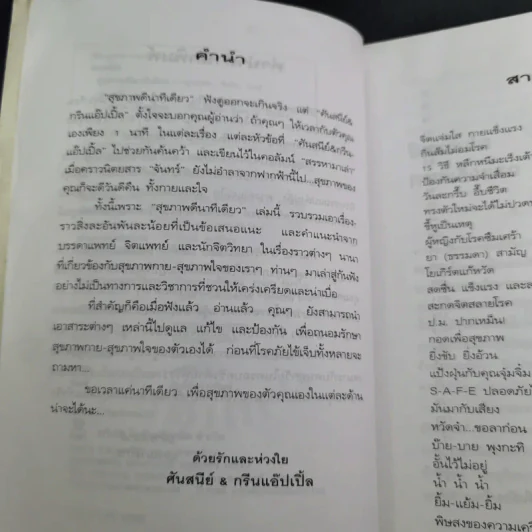 คำนำ
"สุขภาพดีนาทีเดียว" ฟังดูออกจะเกินจริง แต่ "ศันสนีย์&
กรีนแอ๊ปเปิ้ล" ตั้งใจจะบอกคุณผู้อ่านว่า ถ้าคุณๆ ให้เวลากับตัวคุณ
เองเพียง 1 นาที ในแต่ละเรื่อง แต่ละหัวข้อที่ "ศันสนีย์&กรีน-
แอ๊ปเปิ้ล" ไปช่วยกันค้นคว้า และเขียนไว้ในคอลัมน์ "สรรหามาเล่า"
เมื่อคราวนิตยสาร "จันทร์" ยังไม่อำลาจากฟากฟ้านี้ไป...สุขภาพของ
คุณก็จะดีวันดีคืน ทั้งกายและใจ
ทั้งนี้เพราะ "สุขภาพดีนาทีเดียว" เล่มนี้ รวบรวมเอาเรื่อง-
ราวสิ่งละอันพันละน้อยที่เป็นข้อเสนอแนะ และคำแนะนำจาก
บรรดาแพทย์ จิตแพทย์ และนักจิตวิทยา ในเรื่องราวต่างๆ นานา
ที่เกี่ยวข้องกับสุขภาพกาย-สุขภาพใจของเราๆ ท่านๆ มาเล่าสู่กันฟัง
อย่างไม่เป็นทางการและวิชาการที่ชวนให้เคร่งเครียดและน่าเบื่อ
ที่สำคัญก็คือเมื่อฟังแล้ว อ่านแล้ว คุณๆ ยังสามารถนำ
เอาสาระต่างๆ เหล่านี้ไปดูแล แก้ไข และป้องกัน เพื่อถนอมรักษา
สุขภาพกาย-สุขภาพใจของตัวเองได้ ก่อนที่โรคภัยไข้เจ็บทั้งหลายจะ
ถามหา...
ขอเวลาแค่นาทีเดียว เพื่อสุขภาพของตัวคุณเองในแต่ละด้าน
น่าจะได้นะ...
ด้วยรักและห่วงใย
ศันสนีย์ & กรีนแอ๊ปเปิ้ล
สา
จิตแจ่มใส กายแข็งแรง
กินส้มไม่อมโรค
15 วิธี หลีกหนีมะเร็งเต้า
ป้องกันความจำเสื่อม
วันละกรึ๊บ อึ๊บชีวิต
ทรงตัวใหม่จะได้ไม่ปวด
ชี้หูเป็นเหตุ
ผู้หญิงกับโรคซึมเศร้า
ยา (ธรรมดา) สามัญ
โยเกิร์ตแก้หวัด
สดชื่น แข็งแรง และ
สะกดจิตสลายโรค
ป.ม. ปากเหม็น!
กอดเพื่อสุขภาพ
ยิ่งขับ ยิ่งอ้วน
แป้งฝุ่นกับคุณจุ๋มจิ๋ม
S-A-F-E ปลอดภัย
มันมากับเสียง
หวัดจ๋า...ขอลาก่อน
บ๊าย-บาย พุงกะทิ
อั้นไว้ไม่อยู่
น้ำ น้ำ น้ำ
ยิ้ม-แย้ม-ยิ้ม
พิษสงของความเค